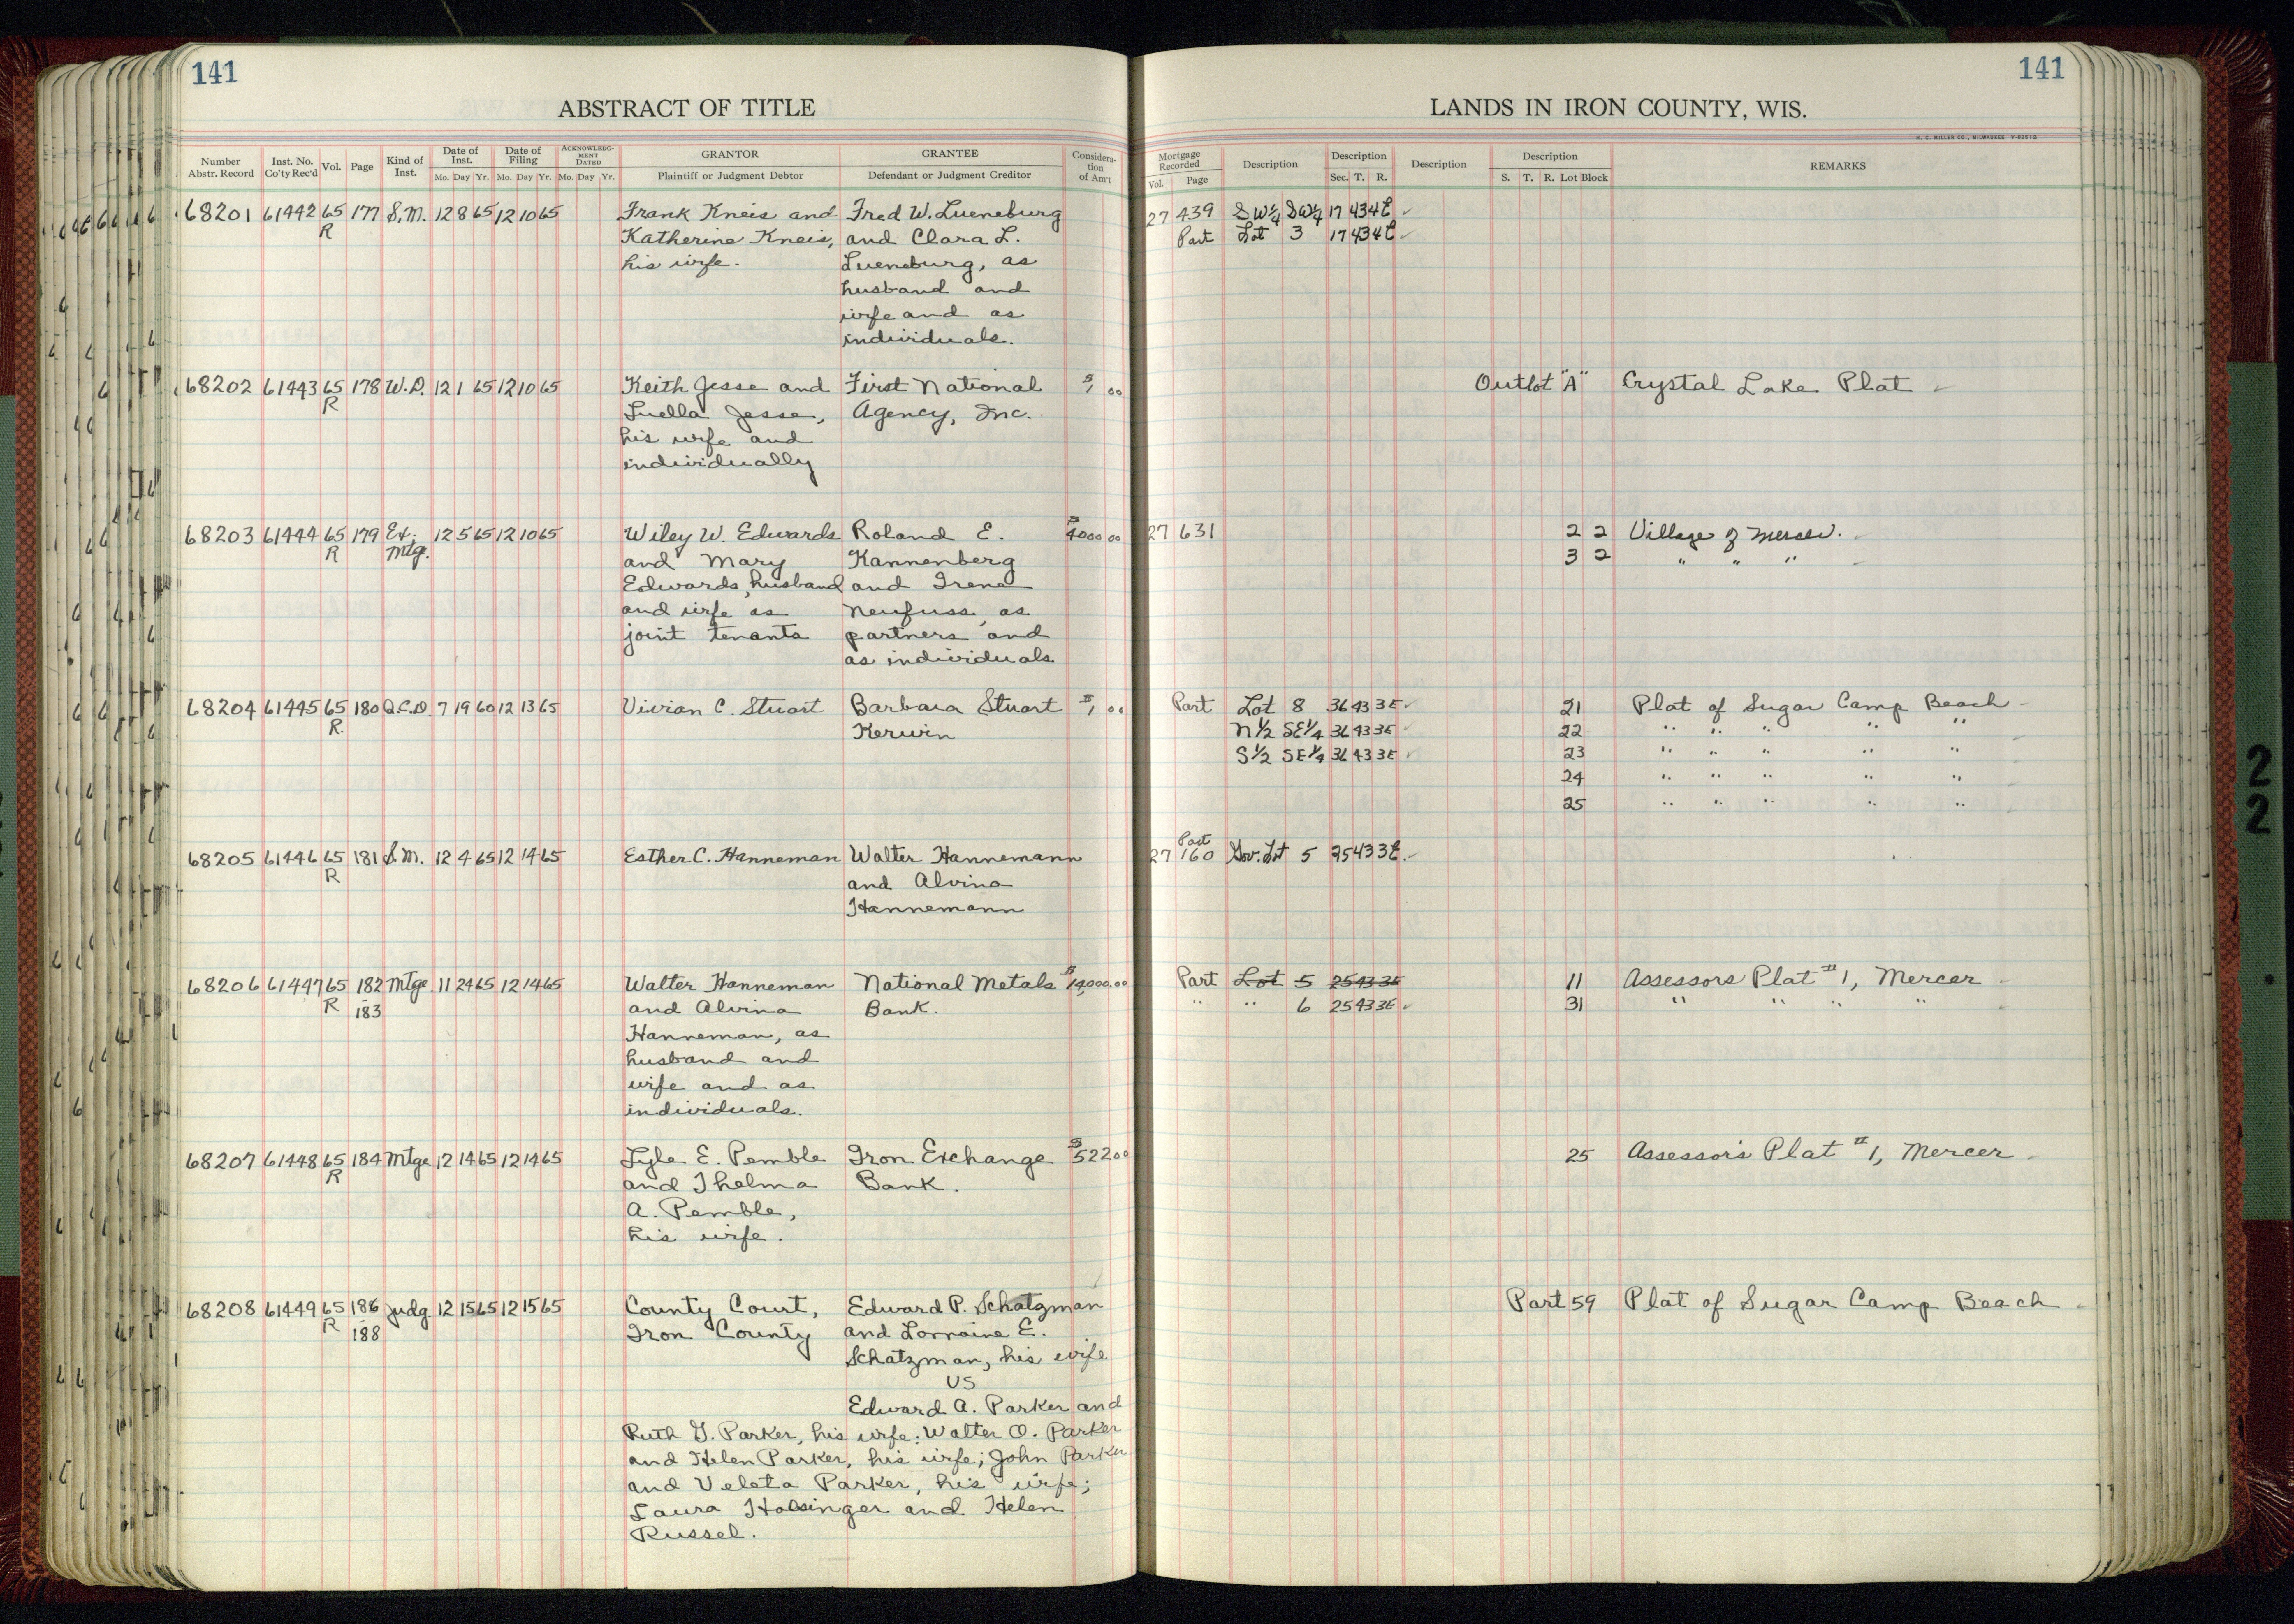 141
141
ABSTRACT OF TITLE
LANDS IN IRON COUNTY, WIS.
H. C. MILLER CO., MILWAUKEE
Number Abstr. Record Inst. No. Co'ty Rec'd Vol. Page Kind of Inst. Date of Inst. Mo. Day Yr. Date of Filing Mo. Day Yr. ACKNOWLEDG-MENT DATED Mo. Day Yr. GRANTOR Plaintiff or Judgment Debtor GRANTEE Defendant or Judgment Creditor Considera-tion of Am't
Mortgage Recorded Vol. Page Description Description Sec. T. R. Description Description S. T. R. Lot Block REMARKS
68201 61442 65 177 S.M. 12 8 65 12 10 65 Frank Kneis and Fred W. Lueneburg 27 439 SW¼ SW¼ 17 43 4E
R Katherine Kneis, and Clara L. Part Lot 3 17 43 4E
his wife. Lueneburg, as
husband and
wife and as
individuals.
68202 61443 65 178 W.D. 12 1 65 12 10 65 Keith Jesse and First National $1,00 Outlot "A" Crystal Lake Plat
R Luella Jesse, Agency, Inc.
his wife and
individually
68203 61444 65 179 Ext. 12 5 65 12 10 65 Wiley W. Edwards Roland E. $4000 00 27 631 2 2 Village of Mercer.
R Mtg. and Mary Kannenberg 3 2 " " "
Edwards, husband and Irene
and wife as Neufuss, as
joint tenants partners and
as individuals
68204 61445 65 180 Q.C.D. 7 19 60 12 13 65 Vivian C. Stuart Barbara Stuart $1,00 Part Lot 8 36 43 3E 21 Plat of Sugar Camp Beach
R. Kerwin N½ SE¼ 36 43 3E 22 " " " " "
S½ SE¼ 36 43 3E 23 " " " " "
24 " " " " "
25 " " " " "
Part
68205 61446 65 181 S.M. 12 4 65 12 14 65 Esther C. Hanneman Walter Hannemann 27 160 Gov. Lot 5 25 43 3E.
R and Alvina
Hannemann
68206 61447 65 182 Mtge. 11 24 65 12 14 65 Walter Hanneman National Metals $14,000.00 Part Lot 5 25 43 3E 11 Assessors Plat #1, Mercer
R 183 and Alvina Bank. " " 6 25 43 3E 31 " " " "
Hanneman, as
husband and
wife and as
individuals.
68207 61448 65 184 Mtge 12 14 65 12 14 65 Lyle E. Pemble Iron Exchange $522 00 25 Assessor's Plat #1, Mercer
R and Thelma Bank.
A. Pemble,
his wife.
68208 61449 65 186 Judg. 12 15 65 12 15 65 County Court, Edward P. Schatzman Part 59 Plat of Sugar Camp Beach
R 188 Iron County and Lorraine E.
Schatzman, his wife
VS
Edward A. Parker and
Ruth G. Parker, his wife; Walter O. Parker
and Helen Parker, his wife; John Parker
and Veleta Parker, his wife;
Laura Holsinger and Helen
Russel.
2
2